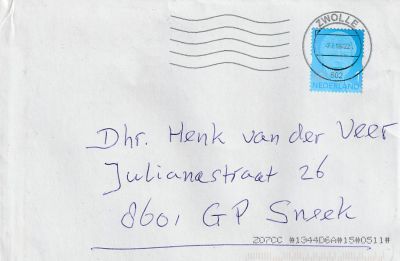 ZWOLLE
602
NEDERLAND
Dhr. Henk van der Veer
Julianastraat 26
8601 GP Sneek
207CC #1344D6A#15#0511#